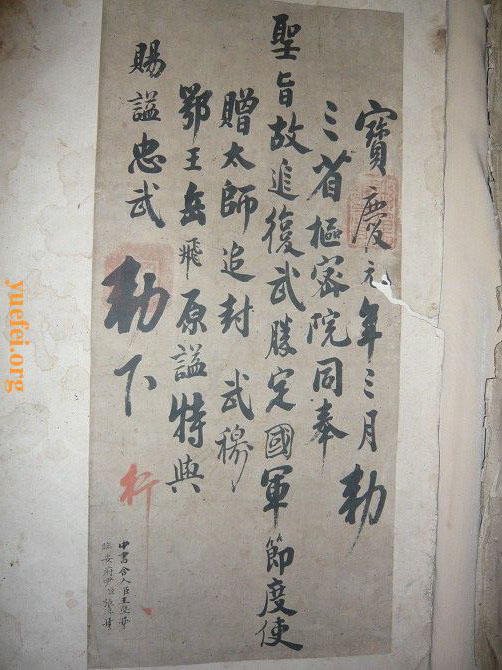 寶慶元年三月勅
三省樞密院同奉
聖旨故追復武勝定國軍節度使
贈太師追封 武穆
鄂王岳飛原謚特與
賜謚忠武
勅下
行
中書舍人臣王
臨安府尹臣
yuefei.org